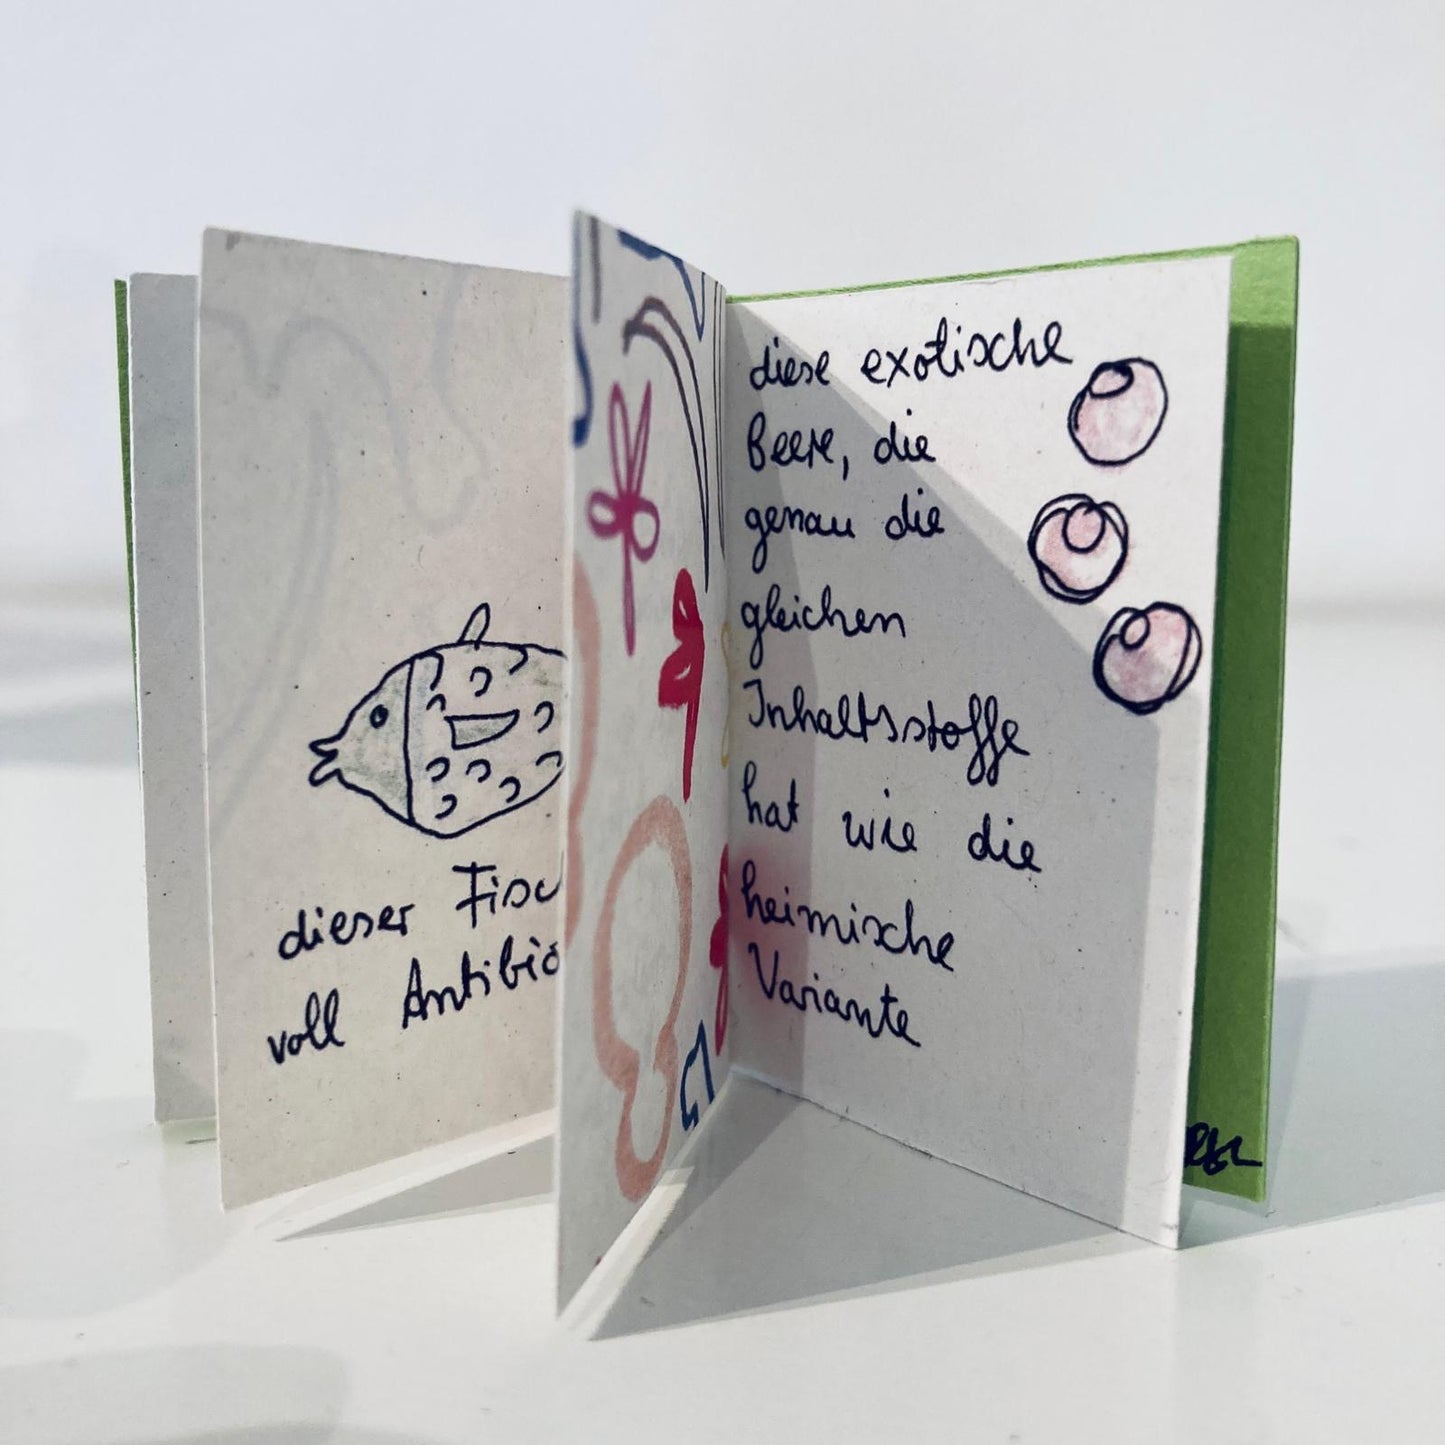 dieser Fisc
voll Antibio
diese exotische
Beere, die
genau die
gleichen
Inhaltsstoffe
hat wie die
heimische
Variante